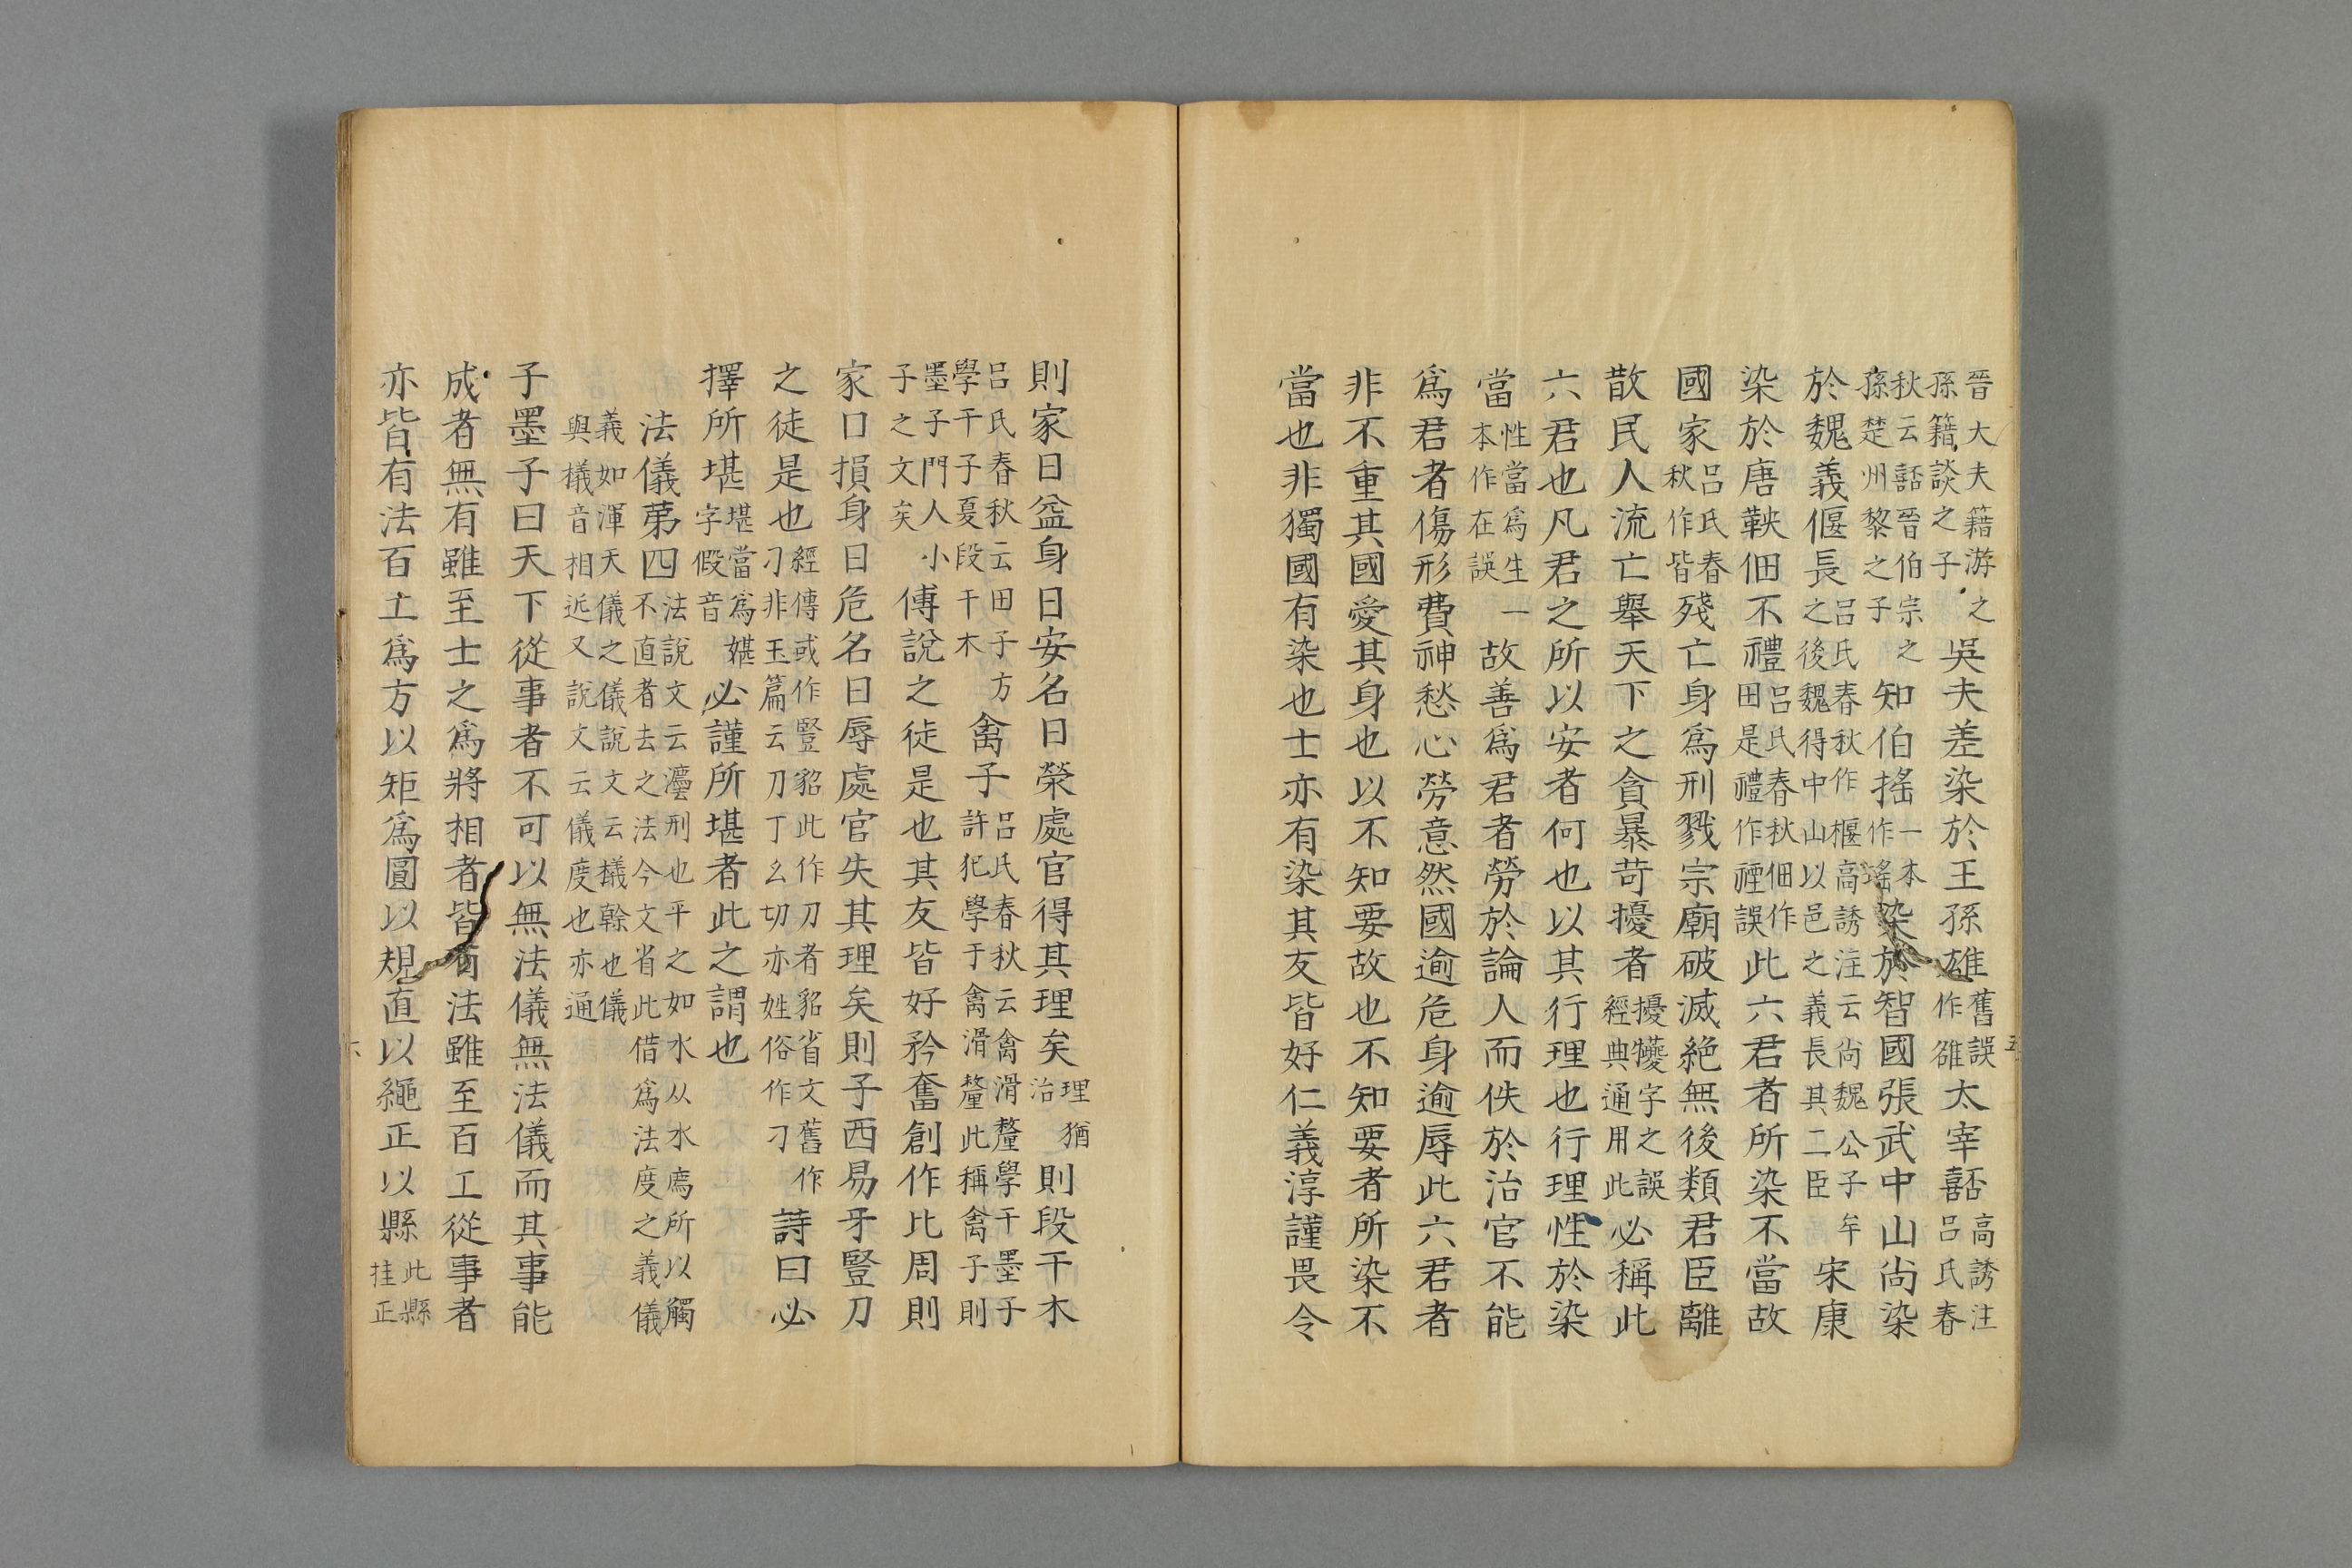 晉大夫籍游之
孫籍談之子吳夫差染於王孫雄舊誤
作雒太宰嚭高誘注
呂氏春
秋云嚭晉伯宗之
孫楚州黎之子知伯搖一本
作瑤染於智國張武中山尚染
於魏義偃長呂氏春秋作椻高誘注云尚魏公子牟
之後魏得中山以邑之義長其二臣宋康
染於唐鞅佃不禮呂氏春秋佃作
田是禮作禋誤此六君者所染不當故
國家呂氏春
秋作皆殘亡身爲刑戮宗廟破滅絕無後類君臣離
散民人流亡舉天下之貪暴苛擾者擾㹛字之誤
經典通用此必稱此
六君也凡君之所以安者何也以其行理也行理性於染
當性當爲生一
本作在誤故善爲君者勞於論人而佚於治官不能
爲君者傷形費神愁心勞意然國逾危身逾辱此六君者
非不重其國愛其身也以不知要故也不知要者所染不
當也非獨國有染也士亦有染其友皆好仁義淳謹畏令
五
則家日益身日安名日榮處官得其理矣理猶
治則段干木
呂氏春秋云田子方
學干子夏段干木禽子呂氏春秋云禽滑釐學干墨子
許犯學于禽滑釐此稱禽子則
墨子門人小
子之文矣傅說之徒是也其友皆好矜奮創作比周則
家口損身日危名日辱處官失其理矣則子西易牙豎刀
之徒是也經傳或作豎貂此作刀者貂省文舊作
刁非玉篇云刀丁幺切亦姓俗作刁詩曰必
擇所堪堪當爲媅
字假音必謹所堪者此之謂也
法儀第四法說文云灋刑也平之如水从水廌所以觸
不直者去之法今文省此借爲法度之義儀
義如渾天儀之儀說文云檥榦也儀
與檥音相近又說文云儀度也亦通
子墨子曰天下從事者不可以無法儀無法儀而其事能
成者無有雖至士之爲將相者皆有法雖至百工從事者
亦皆有法百工爲方以矩爲圓以規直以繩正以縣此縣
挂正
六